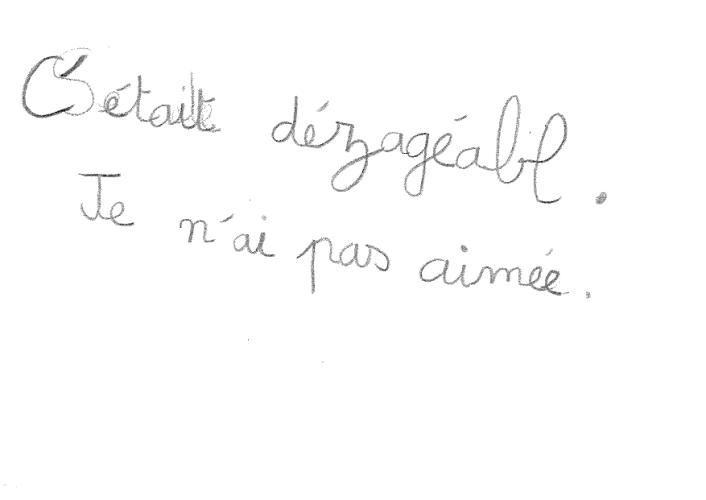 C'était dézagéabl.
Je n'ai pas aimée.